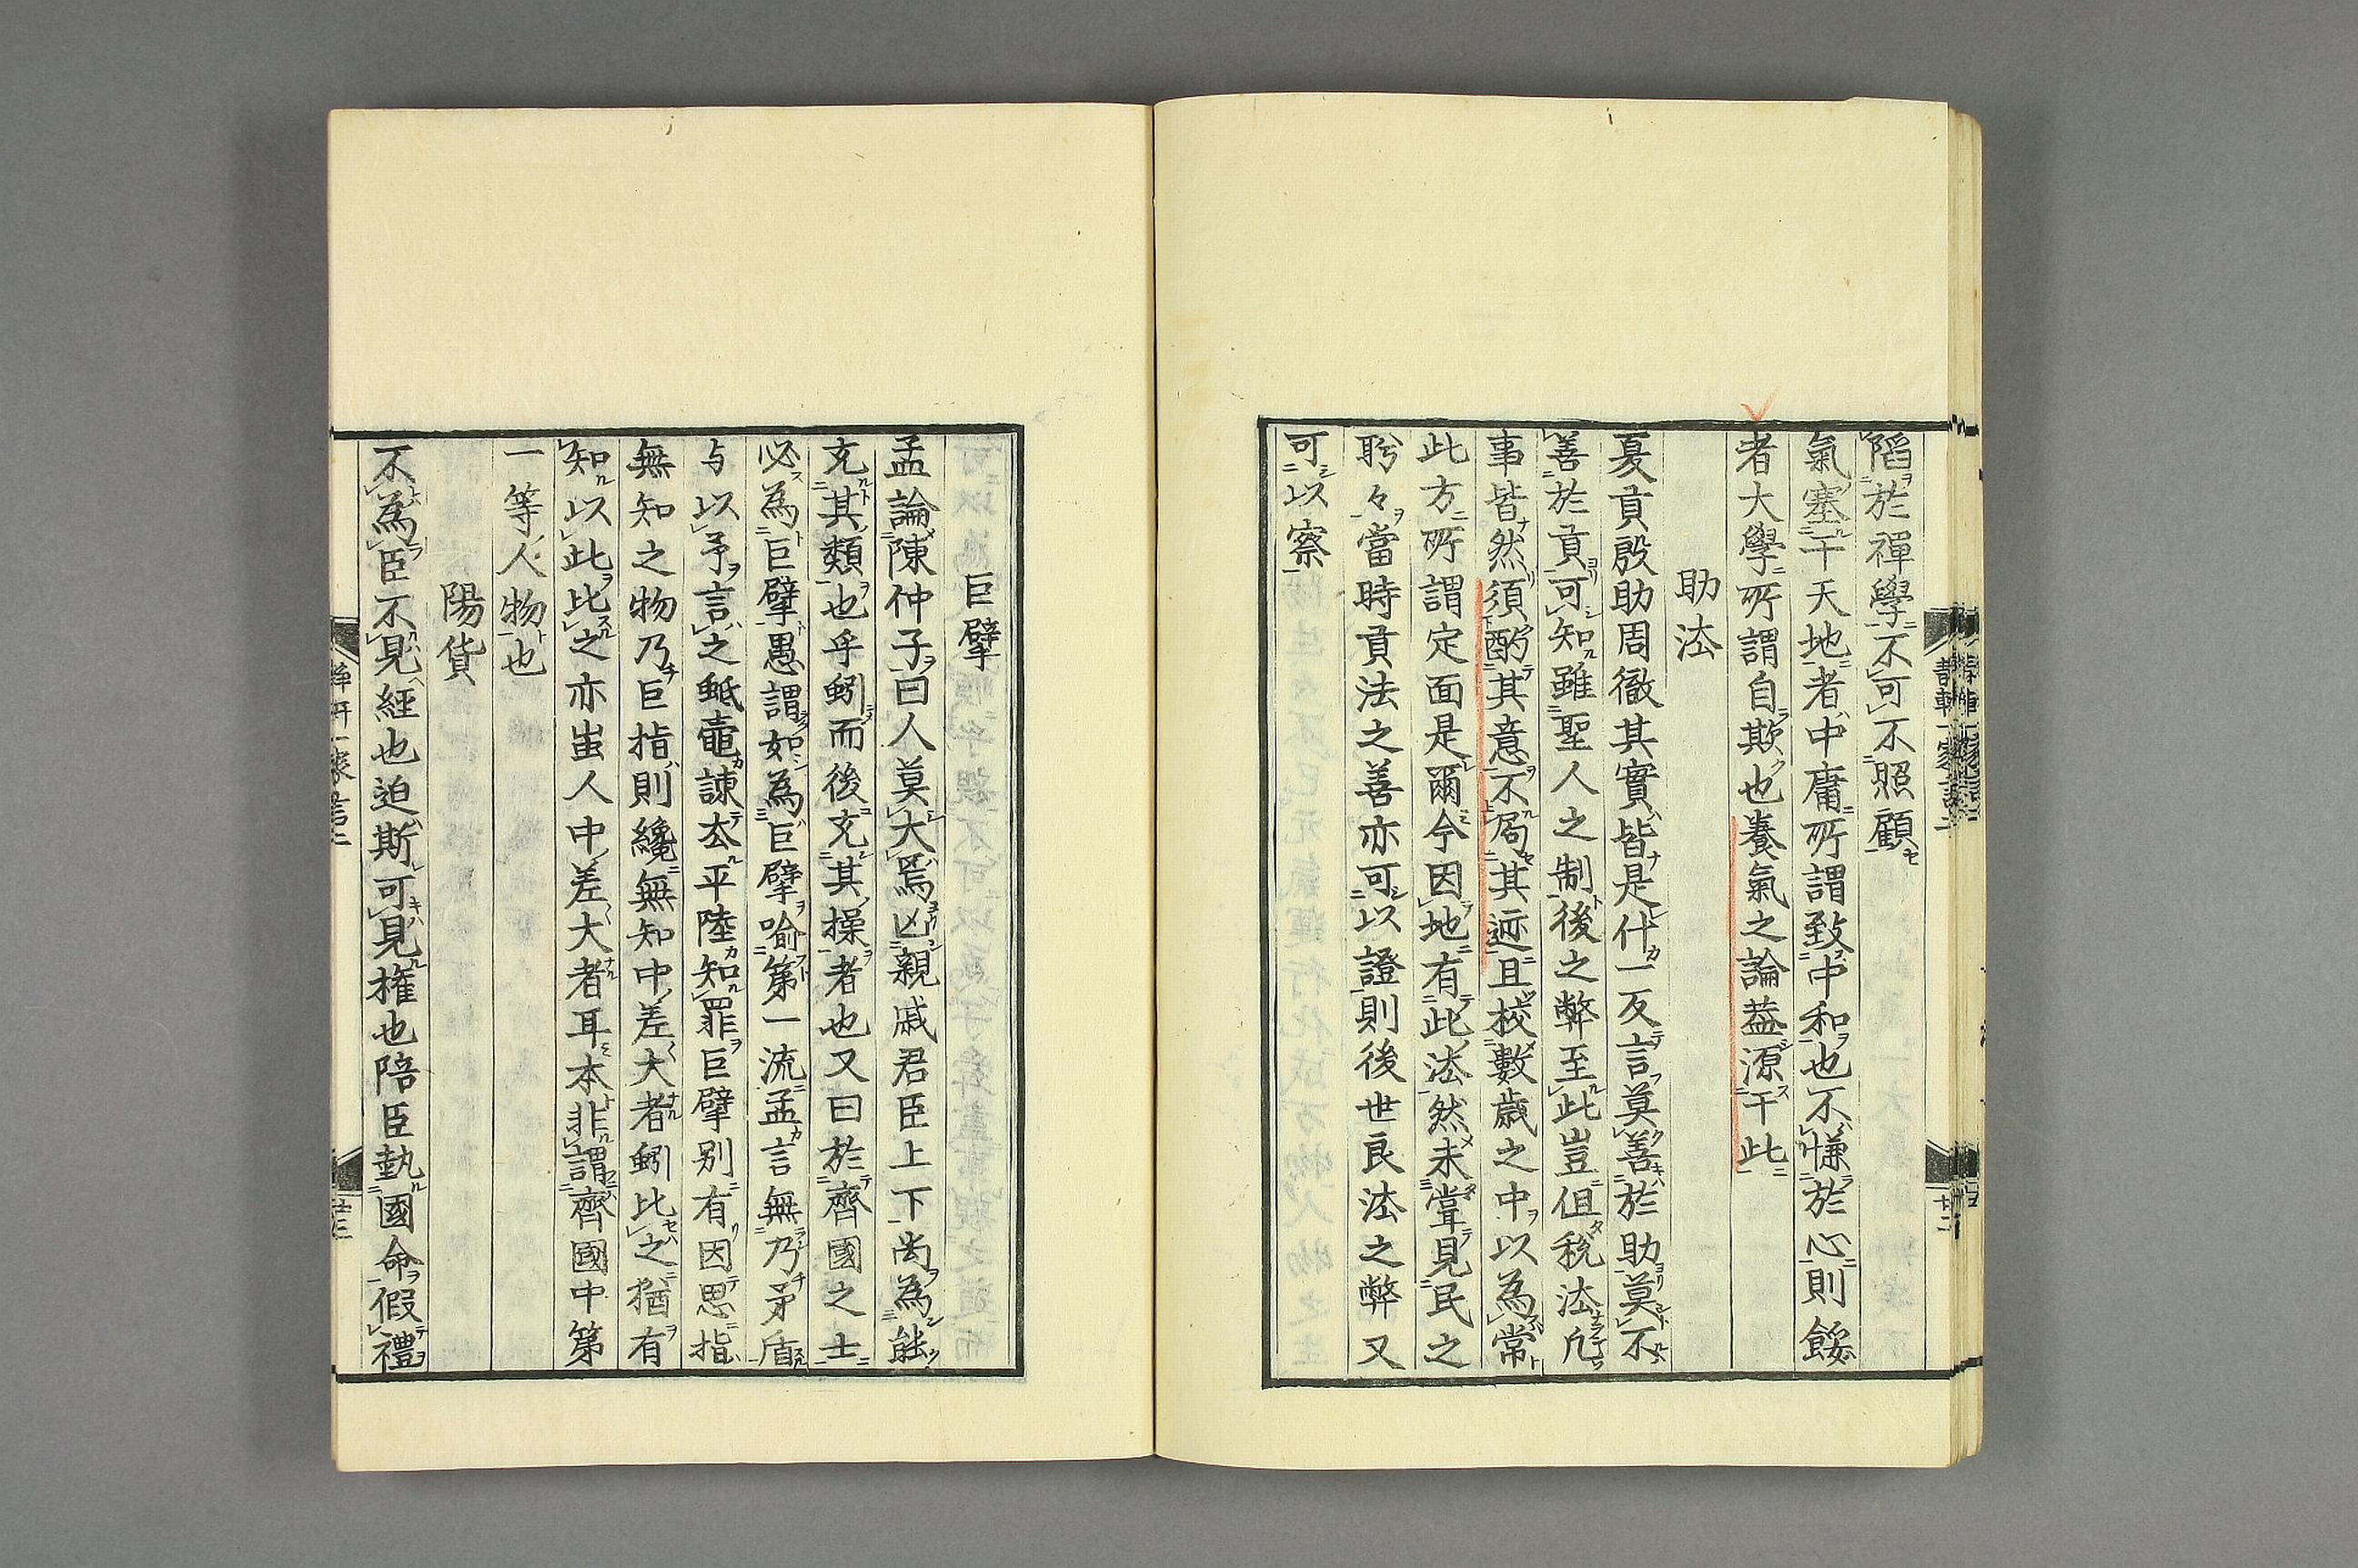 陷於禪學不可不照顧
氣塞于天地者中庸所謂致中和也不慊於心則餒
者大學所謂自欺也養氣之論蓋源于此
助法
夏貢殷助周徹其實皆是什一反言莫善於助莫不
善於貢可知雖聖人之制後之弊至此豈但稅法凡
事皆然須酌其意不局其迹且校數歲之中以為常
此方所謂定面是爾今因地有此法然未嘗見民之
盻々當時貢法之善亦可以證則後世良法之弊又
可以察
巨擘
孟論陳仲子曰人莫大焉亡親戚君臣上下尚為能
充其類也乎蚓而後充其操者也又曰於齊國之士
必為巨擘愚謂如為巨擘喻第一流孟言無乃矛盾
与以予言之蚳鼃諫去平陸知罪巨擘別有因思指
無知之物乃巨指則纔無知中差大者蚓比之猶有
知以此比之亦蚩人中差大者耳本非謂齊國中第
一等人物也
陽貨
不為臣不見經也迫斯可見權也陪臣執國命假禮